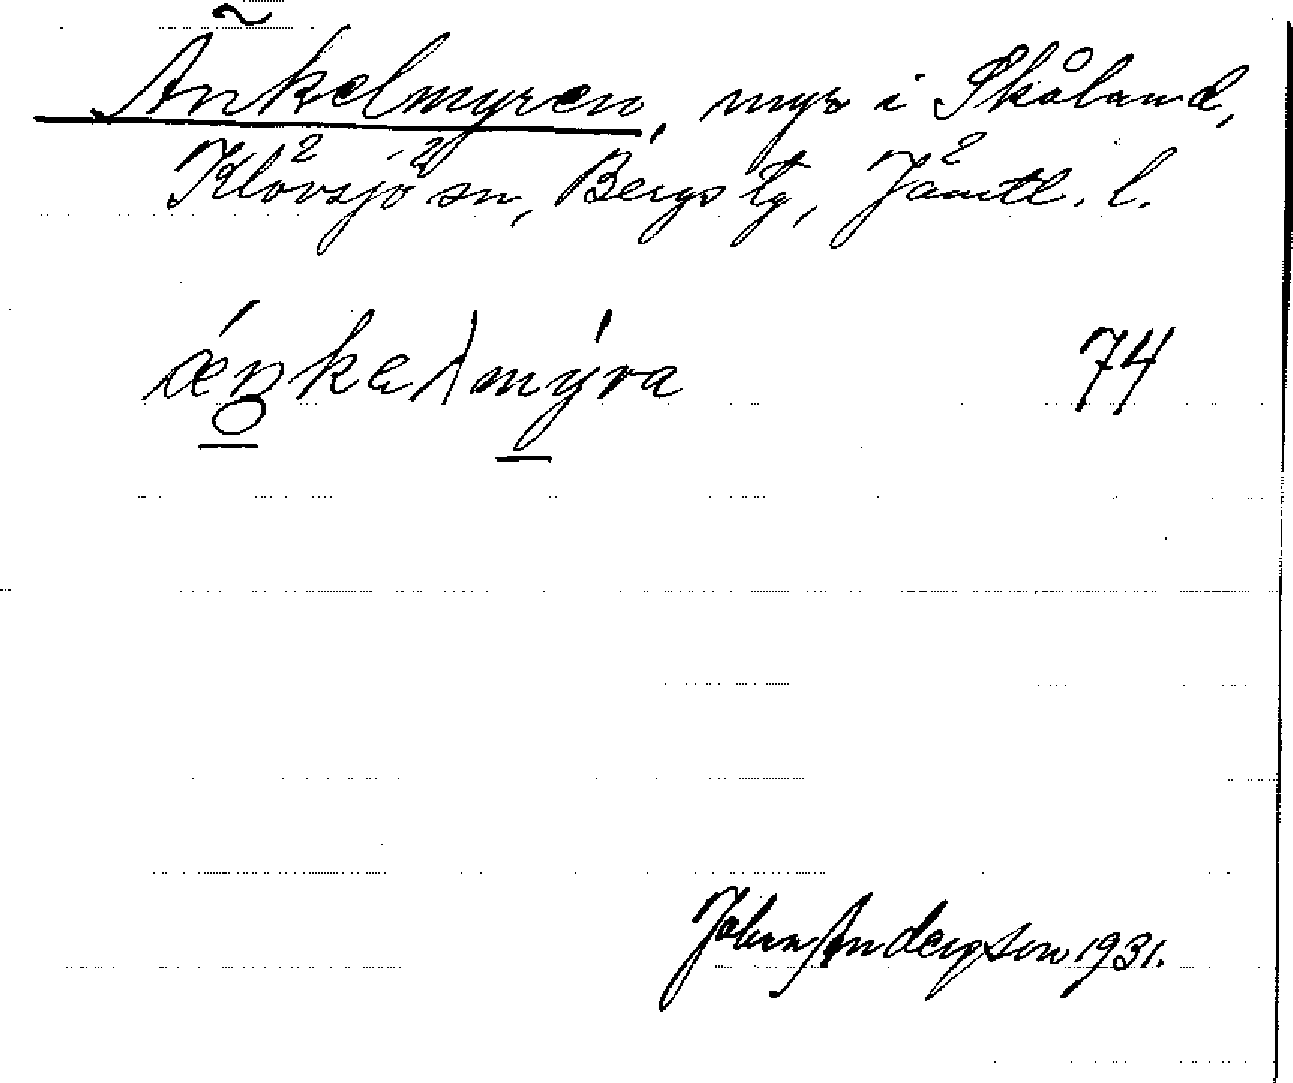 Änkelmyren, myr i Skåland,
Klövsjö sn, Bergs tg, Jämtl. l.
74
John Andersson 1931.